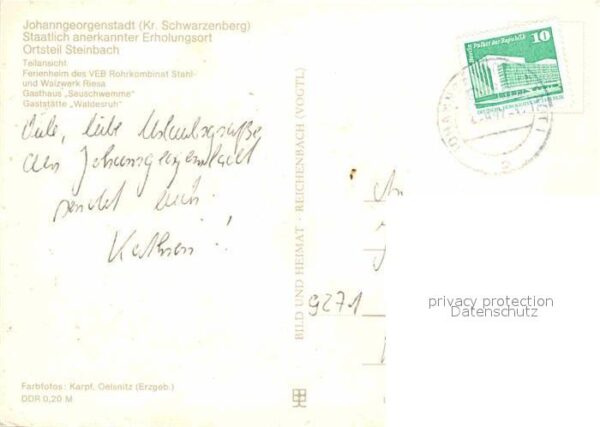 Johanngeorgenstadt (Kr. Schwarzenberg)
Staatlich anerkannter Erholungsort
Ortsteil Steinbach
Teilansicht
Ferienheim des VEB Rohrkombinat Stahl-
und Walzwerk Riesa
Gasthaus „Sauschwemme"
Gaststätte „Waldesruh"
Viele, liebe Urlaubsgrüße
aus Johanngeorgenstadt
sendet Euch
Kathrin!
BILD UND HEIMAT · REICHENBACH (VOGTL)
Berlin Palast der Republik
10
An
9271
privacy protection
Datenschutz
Farbfotos: Karpf, Oelsnitz (Erzgeb.)
DDR 0,20 M